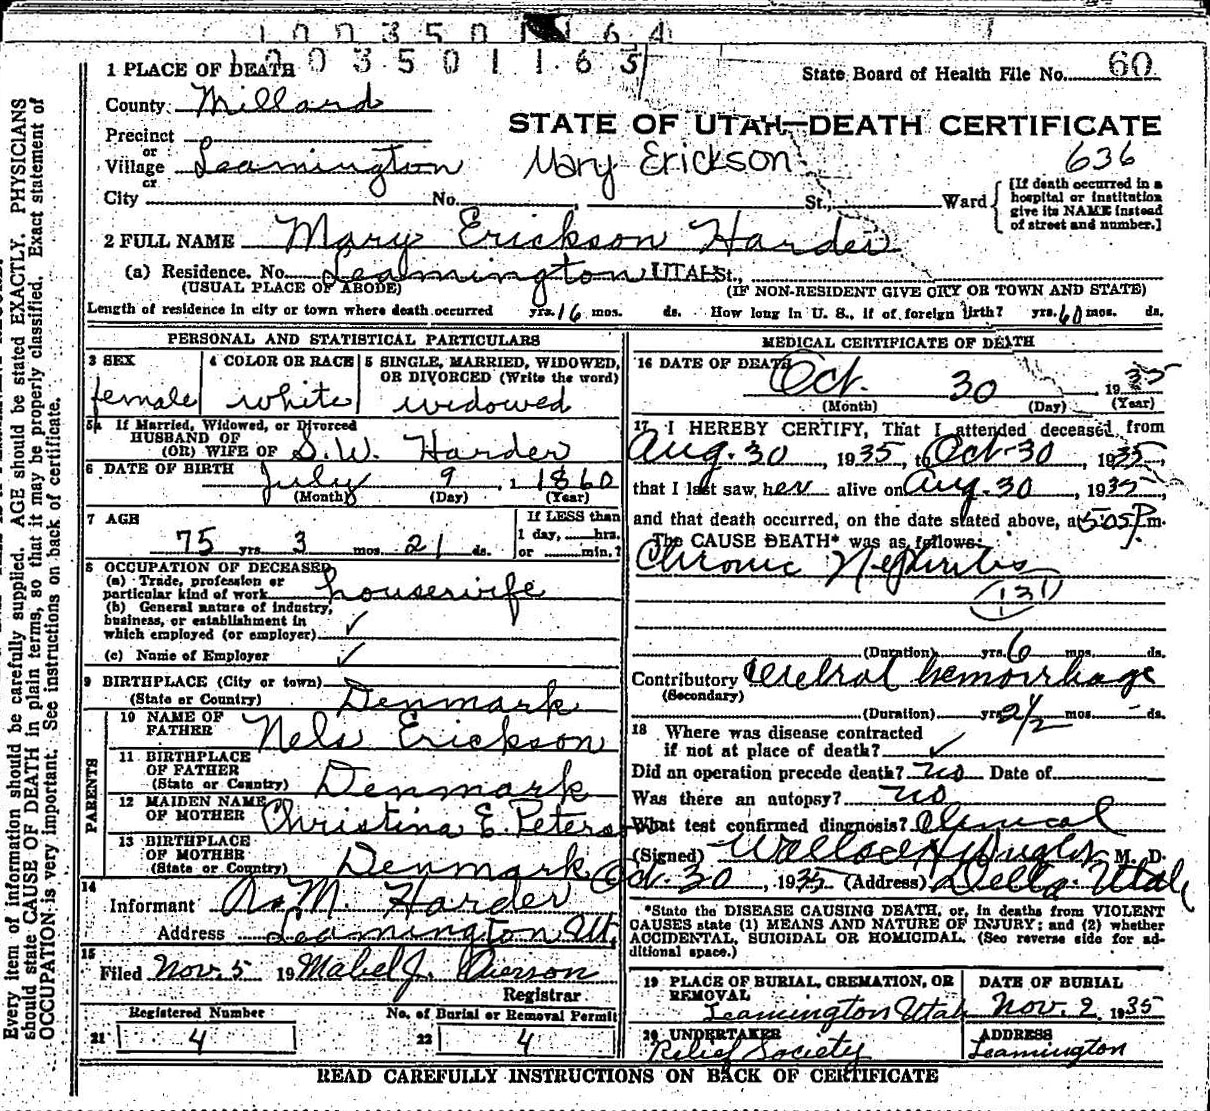 1003501164
1003501165
1 PLACE OF DEATH
State Board of Health File No. 60
County Millard
STATE OF UTAH—DEATH CERTIFICATE
Precinct
or
Village Leamington
Mary Erickson 636
or
City No. St., Ward
[If death occurred in a
hospital or institution
give its NAME instead
of street and number.]
2 FULL NAME Mary Erickson Harder
(a) Residence. No. Leamington UTAH St.,
(USUAL PLACE OF ABODE) (IF NON-RESIDENT GIVE CITY OR TOWN AND STATE)
Length of residence in city or town where death occurred yrs. 16 mos. ds. How long in U. S., if of foreign birth? yrs. 60 mos. ds.
PERSONAL AND STATISTICAL PARTICULARS
3 SEX
female
4 COLOR OR RACE
white
5 SINGLE, MARRIED, WIDOWED,
OR DIVORCED (Write the word)
widowed
5a If Married, Widowed, or Divorced
HUSBAND OF
(OR) WIFE OF S.W. Harder
6 DATE OF BIRTH July 9, 1 1860
(Month) (Day) (Year)
7 AGE
75 yrs. 3 mos. 21 ds.
If LESS than
1 day, hrs.
or min.?
8 OCCUPATION OF DECEASED
(a) Trade, profession or
particular kind of work housewife
(b) General nature of industry,
business, or establishment in
which employed (or employer) ✓
(c) Name of Employer ✓
9 BIRTHPLACE (City or town)
(State or Country) Denmark
PARENTS
10 NAME OF
FATHER Nels Erickson
11 BIRTHPLACE
OF FATHER
(State or Country) Denmark
12 MAIDEN NAME
OF MOTHER Christina E. Peterson
13 BIRTHPLACE
OF MOTHER
(State or Country) Denmark
14
Informant A. M. Harder
Address Leamington Ut.
15
Filed Nov. 5 19 Mabel J. Overson
Registrar
Registered Number
21 4
No. of Burial or Removal Permit
22 4
MEDICAL CERTIFICATE OF DEATH
16 DATE OF DEATH Oct. 30 1935
(Month) (Day) (Year)
17 I HEREBY CERTIFY, That I attended deceased from
Aug. 30, 1935, to Oct 30, 1935,
that I last saw her alive on Aug. 30, 1935,
and that death occurred, on the date stated above, at 5:05 P.m.
The CAUSE DEATH* was as follows:
Chronic Nephritis
131
(Duration) yrs. 6 mos. ds.
Contributory Cerebral hemorrhage
(Secondary)
(Duration) yrs. 2 1/2 mos. - ds.
18 Where was disease contracted
if not at place of death? ✓
Did an operation precede death? no Date of
Was there an autopsy? no
What test confirmed diagnosis? Clinical
(Signed) Wallace M. D.
Oct. 30, 1935 (Address) Delta. Utah
*State the DISEASE CAUSING DEATH, or, in deaths from VIOLENT
CAUSES state (1) MEANS AND NATURE OF INJURY; and (2) whether
ACCIDENTAL, SUICIDAL OR HOMICIDAL. (See reverse side for ad-
ditional space.)
19 PLACE OF BURIAL, CREMATION, OR
REMOVAL
Leamington Utah
DATE OF BURIAL
Nov. 2 1935
20 UNDERTAKER
Relief Society
ADDRESS
Leamington
READ CAREFULLY INSTRUCTIONS ON BACK OF CERTIFICATE
Every item of information should be carefully supplied. AGE should be stated EXACTLY. PHYSICIANS
should state CAUSE OF DEATH in plain terms, so that it may be properly classified. Exact statement of
OCCUPATION is very important. See instructions on back of certificate.